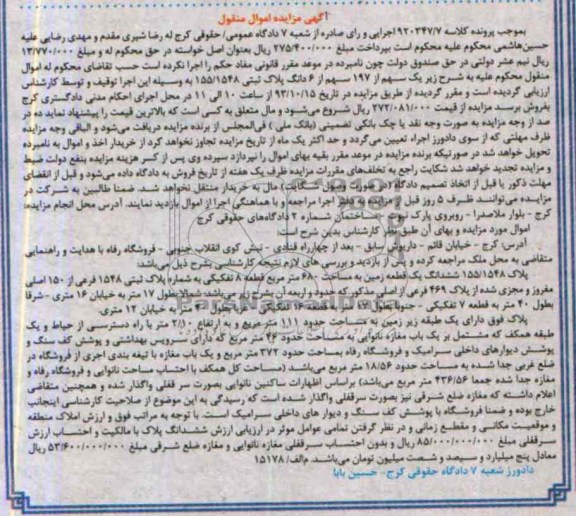 آگهی مزایده اموال منقول
بموجب پرونده کلاسه ۹۲۰۳۴۷/۷ اجرایی و رای صادره از شعبه ۷ دادگاه عمومی/حقوقی کرج له رضا شیری مقدم و مهدی رضایی علیه
حسین هاشمی محکوم علیه محکوم است بپرداخت مبلغ ۲۷۵/۴۰۰/۰۰۰ ریال بعنوان اصل خواسته در حق محکوم له و مبلغ ۱۳/۷۷۰/۰۰۰
ریال نیم عشر دولتی در حق صندوق دولت چون نامبرده در موعد مقرر قانونی مفاد حکم را اجرا نکرده است حسب تقاضای محکوم له اموال
منقول محکوم علیه به شرح زیر یک سهم از ۱۹۷ سهم از ۶ دانگ پلاک ثبتی ۱۵۵/۱۵۴۸ به وسیله این اجرا توقیف و توسط کارشناس
ارزیابی گردیده است و مقرر گردیده از طریق مزایده در تاریخ ۹۳/۱۰/۱۵ از ساعت ۱۰ الی ۱۱ در محل اجرای احکام مدنی دادگستری کرج
بفروش برسد مزایده از قیمت ۲۷۲/۰۸۱/۰۰۰ ریال شروع می‌شود و مال متعلق به کسی است که بالاترین قیمت را پیشنهاد نماید ده در
صد از وجه مزایده به صورت وجه نقد یا چک بانکی تضمینی (بانک ملی) فی‌المجلس از برنده مزایده دریافت می‌شود و الباقی وجه مزایده
ظرف مهلتی که از سوی دادورز اجراء تعیین می‌گردد و حد اکثر یک ماه از تاریخ مزایده تجاوز نخواهد کرد از خریدار اخذ و اموال به نامبرده
تحویل خواهد شد در صورتیکه برنده مزایده در موعد مقرر بقیه بهای اموال را نپردازد سپرده وی پس از کسر هزینه مزایده بنفع دولت ضبط
و مزایده تجدید خواهد شد شکایت راجع به تخلف‌های مقررات مزایده ظرف یک هفته از تاریخ فروش به دادگاه داده می‌شود و قبل از انقضای
مهلت ذکور یا قبل از اتخاذ تصمیم دادگاه (در صورت وصول شکایت) مال به خریدار منتقل نخواهد شد. ضمنا طالبین به شرکت در
مزایده می‌توانند ظرف ۵ روز قبل از مزایده به دفتر اجرا مراجعه و با هماهنگی اجرا از اموال بازدید نمایند. آدرس محل انجام مزایده:
کرج - بلوار ملاصدرا - روبروی پارک ساختمان شماره ۲ دادگاه‌های حقوقی کرج
اموال مورد مزایده و بهای آن طبق نظر کارشناس بدین شرح است:
آدرس: کرج - خیابان قائم - داریوش سابق - بعد از چهارراه قنادی - نبش کوی انقلاب جنوبی - فروشگاه رفاه با هدایت و راهنمایی
متقاضی به محل ملک مراجعه کرده و پس از بازدید و بررسی های لازم نتیجه کارشناسی بشرح ذیل می‌باشد
پلاک ۱۵۵/۱۵۴۸ ششدانگ یک قطعه زمین به مساحت ۶۸۰ متر مربع قطعه ۸ تفکیکی به شماره پلاک ثبتی ۱۵۴۸ فرعی از ۱۵۰ اصلی
مفروز و مجزی شده از پلاک ۴۶۹ فرعی از اصلی مذکور که حدود و اربعه آن بشرح زیر می‌باشد شمالا بطول ۱۷ متر به خیابان ۱۶ متری - شرقا
بطول ۴۰ متر به قطعه ۷ تفکیکی - جنوبا بطول ۱۷ متر به قطعه ۱۶ تفکیکی - غربا بطول ۴۰ متر به خیابان ۱۲ متری.
پلاک فوق دارای یک طبقه زیر زمین به مساحت حدود ۱۱۱ متر مربع و به ارتفاع ۲/۱۰ متر با راه دسترسی از حیاط و یک
طبقه همکف که مشتمل بر یک باب مغازه نانوایی به مساحت حدود ۴۶ متر مربع که دارای سرویس بهداشتی و پوشش کف سنگ و
پوشش دیوارهای داخلی سرامیک و فروشگاه رفاه بمساحت حدود ۳۷۲ متر مربع و یک باب مغازه با تیغه بندی اجری از فروشگاه در
ضلع غربی جدا شده به مساحت حدود ۱۸/۵۶ متر مربع می‌باشد (مساحت کل همکف با احتساب مساحت نانوایی و فروشگاه رفاه و
مغازه جدا شده جمعا ۴۳۶/۵۶ متر مربع می‌باشد) براساس اظهارات ساکنین نانوایی بصورت سر قفلی واگذار شده و همچنین متقاضی
اعلام داشته که مغازه ضلع شرقی نیز بصورت سرقفلی واگذار شده است که رسیدگی به این موضوع از صلاحیت کارشناسی اینجانب
خارج بوده و ضمنا فروشگاه با پوشش کف سنگ و دیوار های داخلی سرامیک است. با توجه به مراتب فوق و ارزش املاک منطقه
و موقعیت مکانی و مقطع زمانی و در نظر گرفتن تمامی عوامل موثر در ارزیابی ارزش ششدانگ پلاک با مالکیت و احتساب ارزش
سرقفلی مبلغ ۸۵/۰۰۰/۰۰۰/۰۰۰ ریال و بدون احتساب سرقفلی مغازه نانوایی و مغازه ضلع شرقی مبلغ ۵۳/۶۰۰/۰۰۰/۰۰۰ ریال
معادل پنج میلیارد و سیصد و شصت میلیون تومان می‌باشد. م/الف/ ۱۵۱۷۸
دادورز شعبه ۷ دادگاه حقوقی کرج - حسین بابا